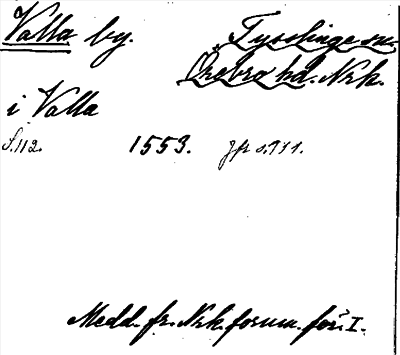 Valla by. Tysslinge sn.
Örebro hd. Nrk.
i Valla
S. 112. 1553. Jfr s. 111.
Medd. fr. Nrk. fornm. för. I.